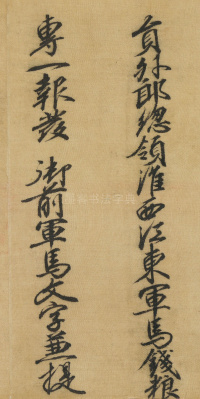 員外郎總領淮西江東軍馬錢粮
專一報發 御前軍馬文字兼提